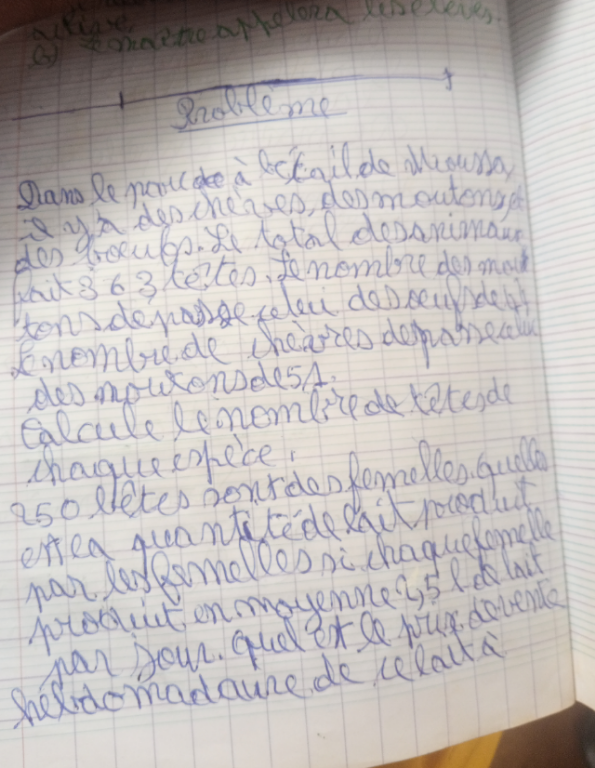 le maître appellera les élèves.
Problème
Dans le parc de à bétail de Moussa,
il y a des chèvres, des moutons et
des bœufs. Le total des animaux
fait 363 têtes. Le nombre des mou
tons depasse celui des oeufs de
Le nombre de chèvres depasse celui
des moutons de 51.
Calcule le nombre de têtes de
chaque espèce.
250 bêtes sont des femelles. quelles
est la quantité de lait produit
par les femelles si chaque femelle
produit en moyenne 2,5 l de lait
par jour. quel est le prix de vente
hebdomadaire de ce lait à